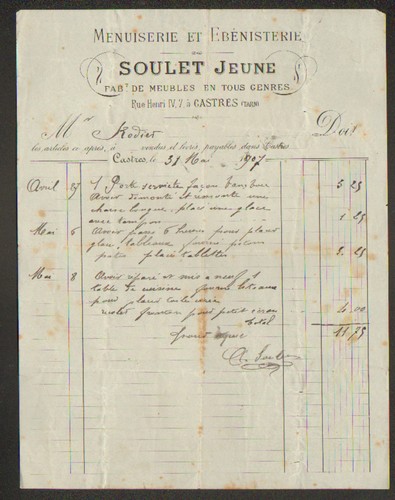 MENUISERIE ET EBÉNISTERIE
SOULET JEUNE
FABT DE MEUBLES EN TOUS GENRES
Rue Henri IV, 7, à CASTRES (TARN)
Mr Rodier Doit
les articles ci-après, à vendus et livrés, payables dans Castres
Castres, le 31 Mai 1907
Avril 27 1 Porte serviette façon bambou 5 25
Avoir démonté et remonté une
chaise longue, placé une glace
1 25
Mai 6 Avoir passé 6 heures pour placer
glace tableaux fourni pitons
placé tablettes 3 25
Mai 8 Avoir réparé et mis a neuf 1
table de cuisine
pour
pour petit
4 00
total 13,75
pour acquit